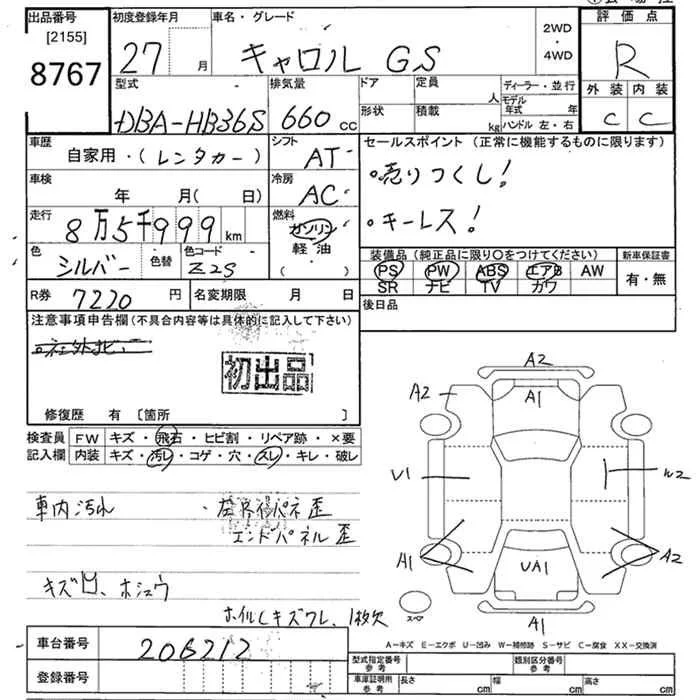 出品番号
[2155]
8767
初度登録年月
27 月
車名・グレード
キャロル GS
2WD
・
4WD
評価点
R
外装 内装
C C
型式
DBA-HB36S
排気量
660 cc
ドア
形状
定員
人
積載
kg
ディーラー・並行
モデル
年式 年
ハンドル 左・右
車歴
自家用・(レンタカー)
シフト
AT
車検
年 月(日)
冷房
AC
走行
8万5千999 km
燃料
ガソリン
軽油
( )
色
シルバー
色替
色コード
Z2S
R券 7220 円
名変期限 月 日
セールスポイント(正常に機能するものに限ります)
。売りつくし!
。キーレス!
装備品(純正品に限り○をつけてください)
PS PW ABS エアB AW
SR ナビ TV カワ
新車保証書
有・無
後日品
注意事項申告欄(不具合内容等は具体的に記入して下さい)
初出品
修復歴 有 [箇所 ]
検査員
記入欄
FW キズ・飛石・ヒビ割・リペア跡・×要
内装 キズ・汚レ・コゲ・穴・スレ・キレ・破レ
車内汚れ
エンドパネル歪
キズ凹、ホシュウ
ホイルCキズワレ、1枚欠
A2
A2
A1
U1
W2
A1
A2
UA1
A1
スペア
A-キズ E-エクボ U-凹み W-補修跡 S-サビ C-腐食 XX-交換済
車台番号 206212
登録番号
型式指定番号
参考
類別区分番号
参考
車庫証明用
参考
長さ cm
幅 cm
高さ cm